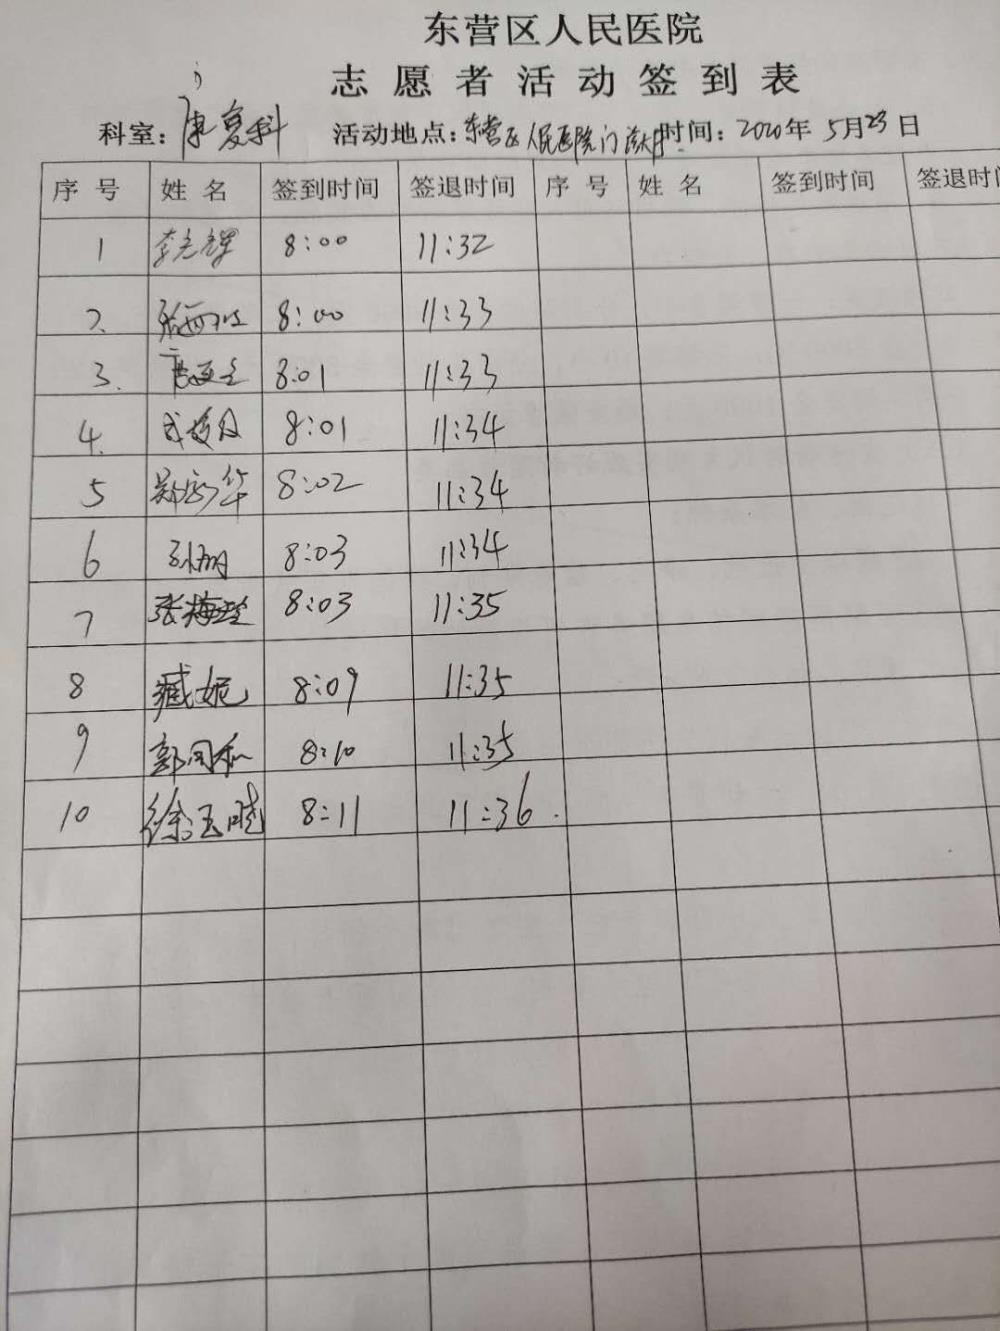 东营区人民医院
志愿者活动签到表
科室：康复科 活动地点：东营区人民医院门诊 时间：2020年5月23日
序号 姓名 签到时间 签退时间 序号 姓名 签到时间 签退时间
1 8:00 11:32
2. 8:00 11:33
3. 8:01 11:33
4. 8:01 11:34
5 郑新华 8:02 11:34
6 8:03 11:34
7 张梅莹 8:03 11:35
8 臧妮 8:09 11:35
9 郭同和 8:10 11:35
10 徐玉晓 8:11 11:36.